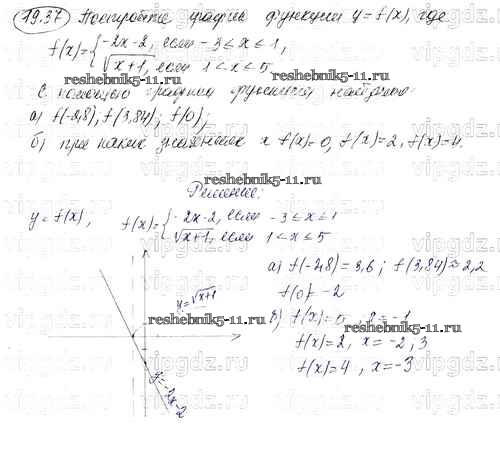 19.37 Постройте график функции y=f(x), где
f(x)={-2x-2, если -3≤x≤1,
√x+1, если 1<x≤5
reshebnik5-11.ru reshebnik5-11.ru
С помощью графика функции найдите
а) f(-2,8); f(3,84); f(0);
б) при каких значениях x f(x)=0, f(x)=2, f(x)=4.
reshebnik5-11.ru
Решение:
y=f(x), f(x)={-2x-2, если -3≤x≤1
√x+1, если 1<x≤5
reshebnik5-11.ru
а) f(-2,8)=3,6; f(3,84)≈2,2
f(0)=-2
y=√x+1
reshebnik5-11.ru
б) f(x)=0, x=-1
reshebnik5-11.ru
f(x)=2, x=-2; 3
f(x)=4, x=-3
y=-2x-2
vipgdz.ru